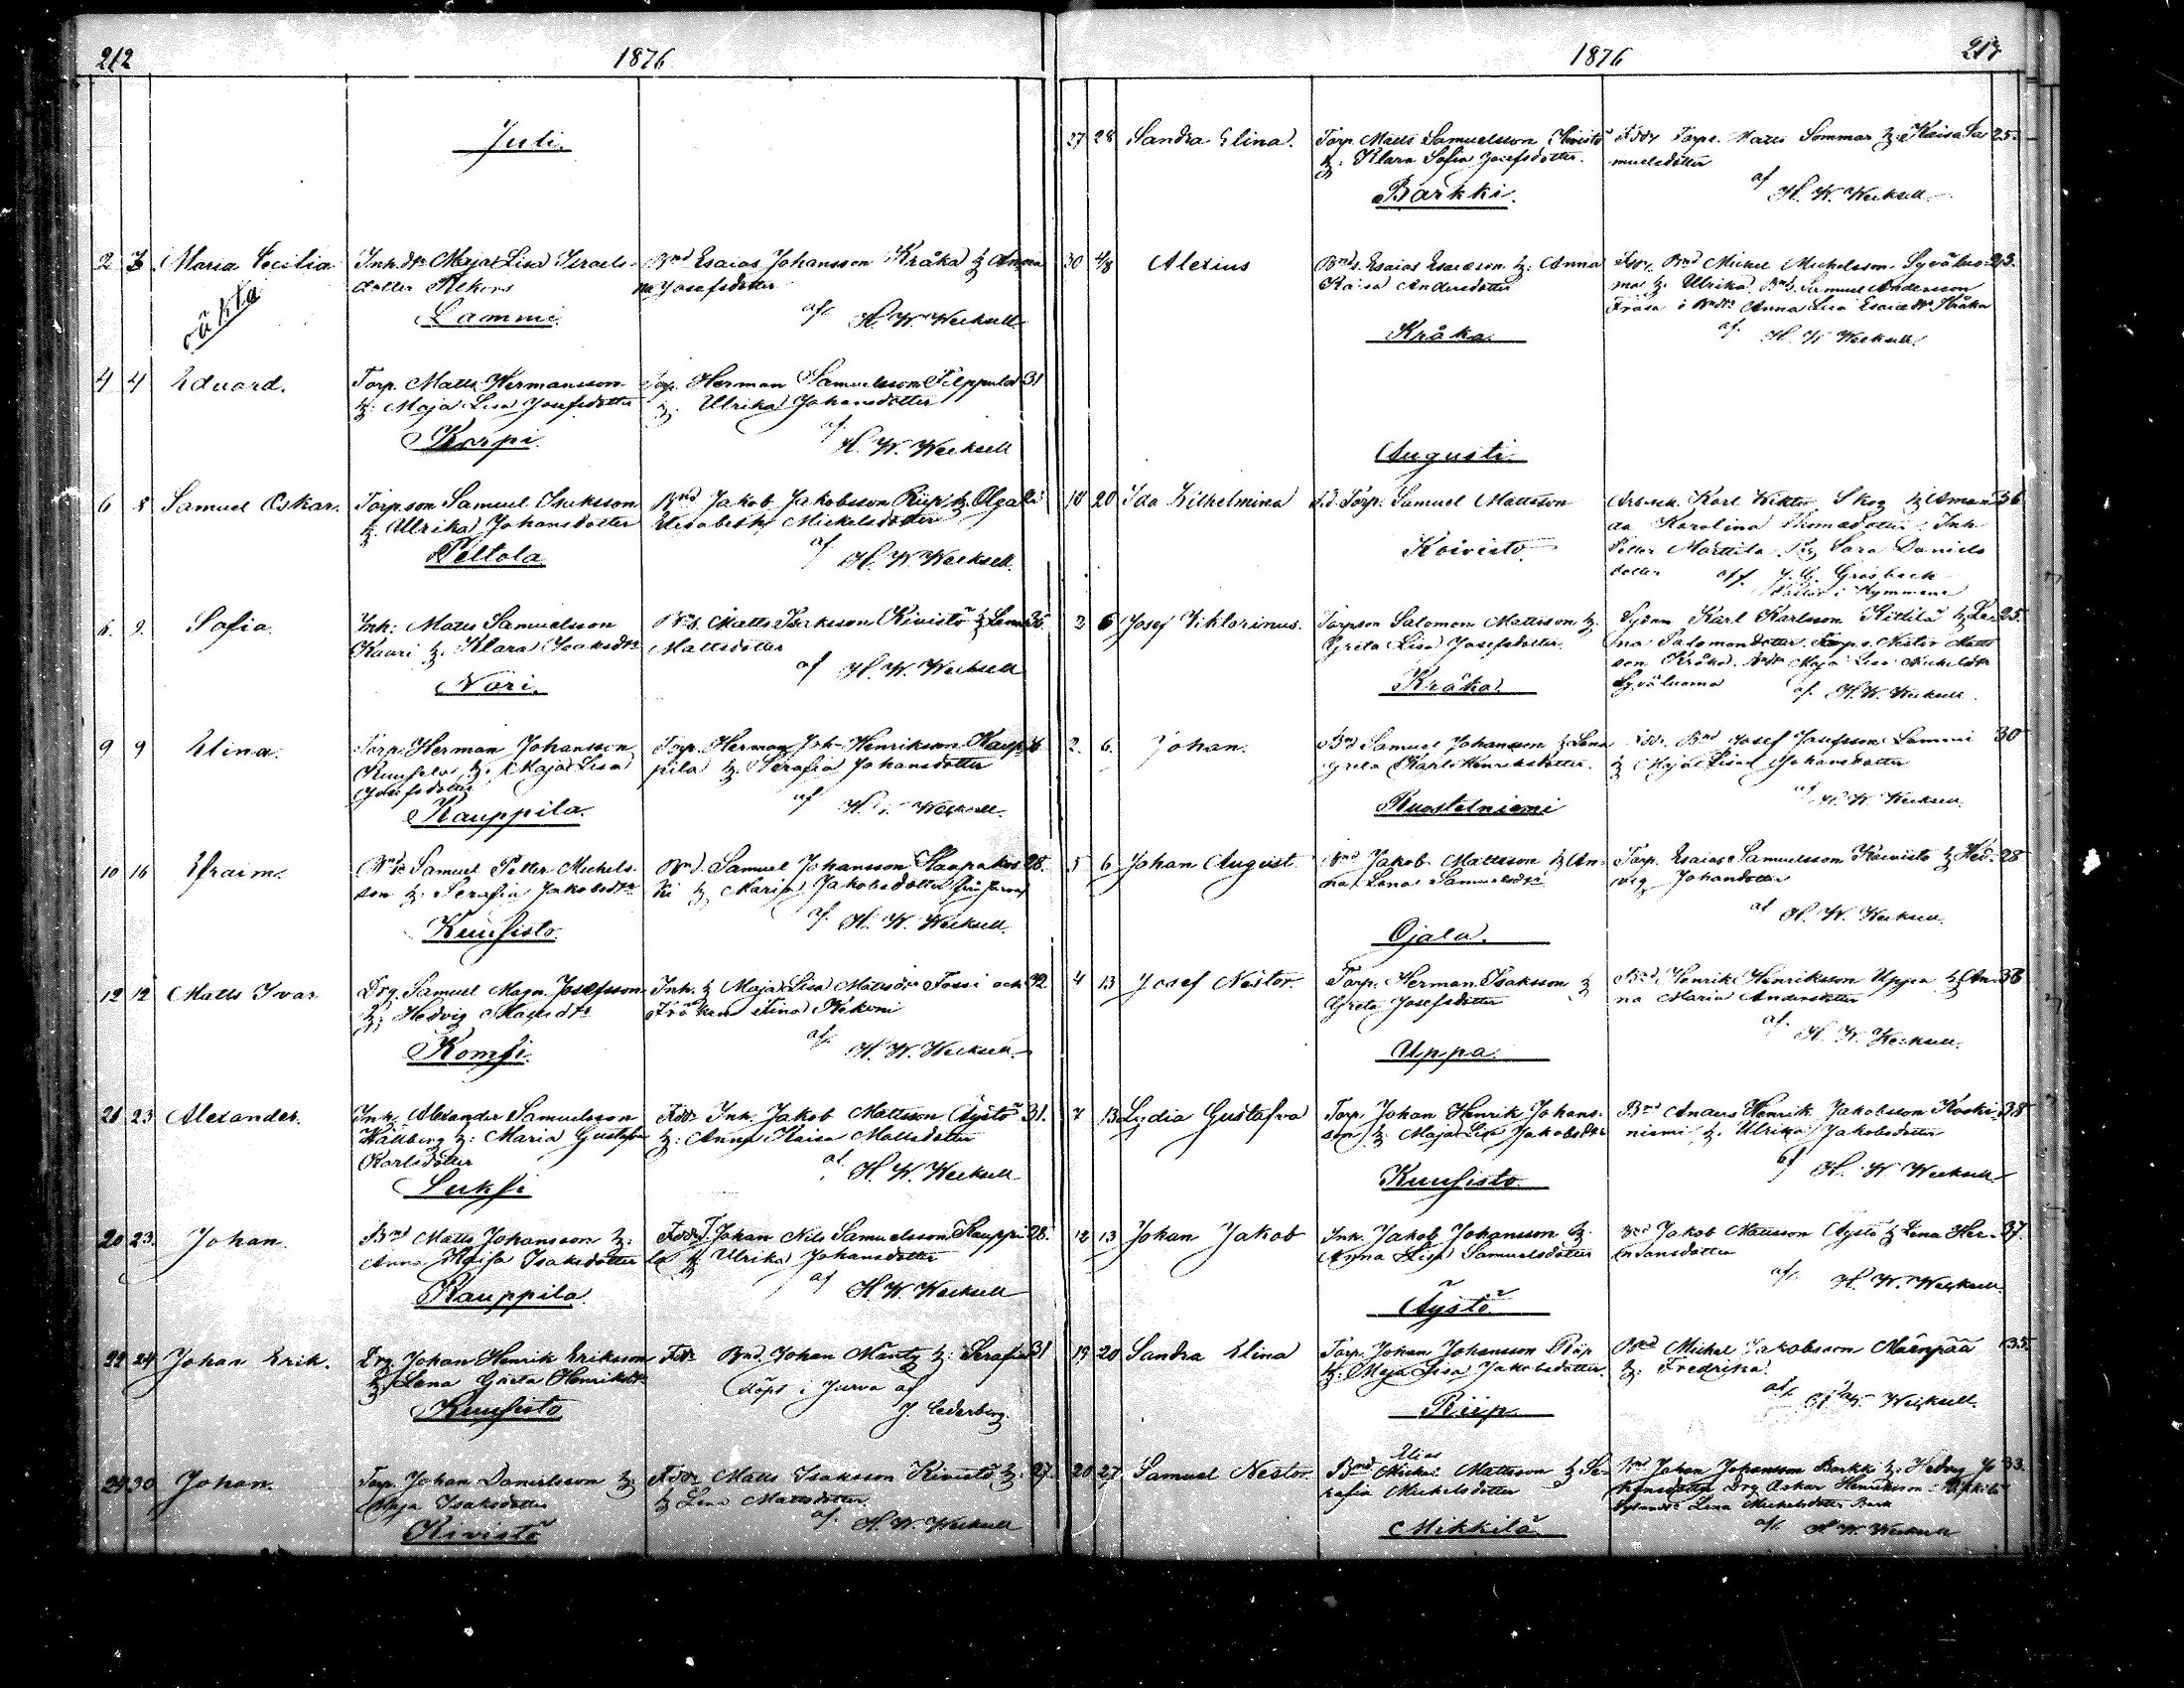 212
1876
Juli.
2 3 Maria Cecilia
oäkta
Inh. dtr Maja Lisa Israels-
dotter
Lammi.
Bnd Esaias Johansson Kråka & An
na Josefsdotter
af. H. W. Wecksell
4 4 Eduard.
Torp. Matts Hermansson
& Maja Lisa Josefsdotter
Korpi.
Torp. Herman Samuelsson Filppula 31
& Ulrika Johansdotter
af H. W. Wecksell
6 8 Samuel Oskar.
Torp.son Samuel Isaksson
& Ulrika Johansdotter
Peltola
Bnd Jakob Jakobsson Riip & Olga
Elisabeth Mickelsdotter
af H. W. Wecksell.
6. 9. Sofia.
Inh: Matts Samuelsson
Kaari & Klara Isaksdtr
Nori.
Matts Isaksson Kivistö & Lena 36.
Mattsdotter
af H. W. Wecksell
9 9 Elina.
Torp. Herman Johansson
& Maja Lisa
Josefsdotter
Kauppila.
Torp. Herman Joh. Henriksson Kaup-
pila & Serafia Johansdotter
af H. W. Wecksell.
10 16 Efraim.
Samuel Petter Michels-
son & Serafia Jakobsdtr
Kuusisto.
Bnd. Samuel Johansson 28.
ki & Maria Jakobsdotter från Jurva
af. H. W. Wecksell.
12 12 Matts Ivar
Drg. Samuel Magn. Josefsson
& Hedvig Mattsdtr
Komsi.
Inh. & Maja Lisa Mattsdtr Fossi och 42
Fröken Tina Kekoni
af. H. W. Wecksell.
21 23 Alexander.
Inh. Alexander Samuelsson
Hällberg &: Maria Gustafva
Karlsdotter
Luksi
Fddr Inh. Jakob Mattsson Äystö 31.
&: Anna Kaisa Mattsdotter
af. H. W. Wecksell
20 23. Johan.
Bnd Matts Johansson &:
Anna Maija Isaksdotter
Kauppila.
Fddr Johan Nils Samuelsson Kauppi 28.
la & Ulrika Johansdotter
af H. W. Wecksell
22 24 Johan Erik.
Drg. Johan Henrik Eriksson
& Lena Greta Henriksdtr
Kuusisto
Fddr Bnd. Johan Mäntz &: Serafia 31
döpt i Jurva af
J. Cederberg.
29 30 Johan.
Torp. Johan Danielsson &:
Maja Isaksdotter
Kivistö
Fddr Matts Isaksson Kivistö &: 27.
& Lena Mattsdotter
af. H. W. Wecksell
1876
217
27 28 Sandra Elina.
Torp. Matts Samuelsson Kivistö
&: Klara Sofia Josefsdotter.
Barkki.
Fddr Torp. Matts Sommar &: Kaisa Sa 25.
muelsdotter
af H. W. Wecksell
30 4/8 Alexius
Bnds. Esaias Esaiesson &: Anna
Kaisa Andersdotter
Kråka.
Fddr. Bnd Mickel Michelsson Syväluo- 23.
ma &. Ulrika, Samuel Andersson
Frasa o Anna Lisa Esaiedtr Kråka
af. H. W. Wecksell.
Augusti.
18 20 Ida Wilhelmina
Torp. Samuel Mattsson
Koivisto
Arb.k. Karl Wiktor Skog & Aman- 36
da Karolina Thomasdotter Inh
Petter Marttila & Sara Daniels
dotter aff. J. G. Grosbeck
Pastor i Kymmene
2 6 Josef Viktorinus.
Torp.son Salomon Mattsson &:
Greta Lisa Josefsdotter
Kråka.
Karl Karlsson Kittilä & Le- 25.
na Salomonsdotter. Torp.s. Nestor Matts
son Kråka, Maja Lisa Mickelsdtr
Syväluoma af. H. W. Wecksell.
2. 6. Johan.
Bnd Samuel Johansson & Lena
Greta Karl Henriksdotter.
Ruostelniemi
Fddr. Bnd Josef Josefsson Lammi 30
& Maja Lisa Johansdotter
af H. W. Wecksell.
5 6 Johan August.
Bnd Jakob Mattsson & An-
na Lena Samuelsdtr
Ojala.
Torp. Esaias Samuelsson Koivisto & Hed- 28
vig Johansdotter
af H. W. Wecksell.
4 13 Josef Nestor.
Torp. Herman Isaksson &
Greta Josefsdotter
Uppa.
Bnd Henrik Henriksson Uppa & An- 38
na Maria Andersdotter
af. H. W. Wecksell.
7 13 Lydia Gustafva
Torp. Johan Henrik Johans-
son & Maja Lisa Jakobsdtr
Kuusisto
Bnd Anders Henrik Jakobsson Koski- 38
niemi &. Ulrika Jakobsdotter
af H. W. Wecksell
12 13 Johan Jakob
Inh. Jakob Johansson &.
Anna Lisa Samuelsdotter
Äystö
Bnd Jakob Mattsson Äystö & Lena Her- 37.
mansdotter
af. H. W. Wecksell.
19 20 Sandra Elina
Torp. Johan Johansson Riip
&: Maja Lisa Jakobsdotter.
Riip.
Bnd Michel Jakobsson Mäenpää 35.
&: Fredrika.
af. H. W. Wecksell.
20 27. Samuel Nestor.
Elias
Bnd Mickel Mattsson & Se-
rafia Michelsdotter
Mikkilä
Bnd Johan Johansson Barkki &: Hedvig Jo 33.
hansdotter Drg Oskar Henriksson
Lena Michelsdotter Bark
af. H. W. Wecksell